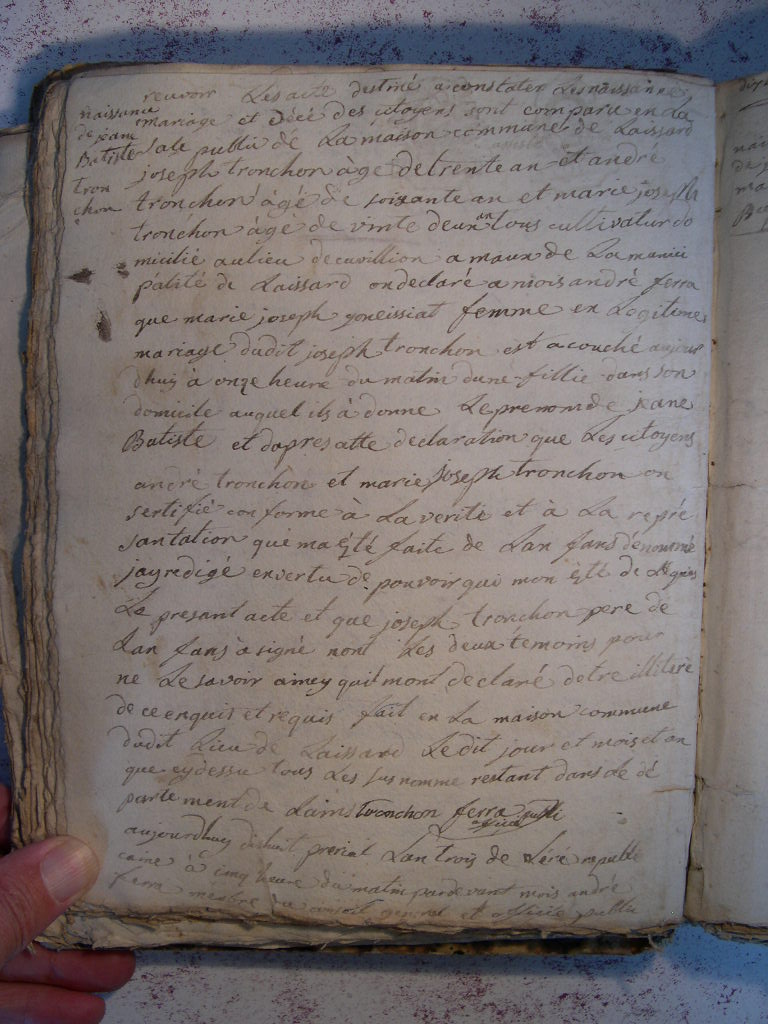 recevoir Les acte destiné a constater Les naissance
naissance
de jeane
Batiste
tron
chon
mariage et Décé des citoyens sont comparu en La
sale publi de La maison commune de Laissard
joseph tronchon àgé detrente an et andré
tronchon àgé de soixante an et marie joseph
tronchon àgé de vinte deux an tous cultivatur do
micilié aulieu de cuvillion a maux de La munici
palité de Laissard on declaré a mois andré ferra
que marie joseph goneissiat femme en Logitime
mariage dudit joseph tronchon est acouché aujour
dhuy à onze heure du matin dune fillie dans son
domicile auquel ils à donne Leprenom de jeane
Batiste et dapres atte declaration que Les citoyens
andré tronchon et marie joseph tronchon on
sertifié conforme à La verite et à La repré
santation que ma été faite de Lan fans dénommé
jay redigé envertu de pouvoir qui mon été de Légués
Le presant acte et que joseph tronchon pere de
Lan fans à signé nont Les deux temoins pour
ne Le savoir aincy quil mont declaré detre illiteré
de ce enquis et requis fait en La maison commune
dudit Lieu de Laissard Ledit jour et mois et an
que cydessu tous Les susnomme restant dans Le dé
partement de Lain tronchon ferra
aujourdhuy dishuit prerial Lan trois de Lére republi
caine à cinq heure du matin pardevant mois andré
ferra membre du conseil general et officié publi